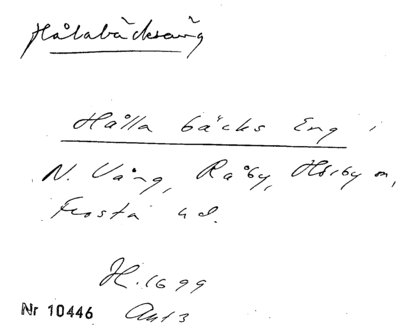 Hålabäcksäng
Hålla bäcks Eng i
N. Vång, Råby, Hörby sn,
Frosta hd.
H. 1699
Nr 10446 Akt 3